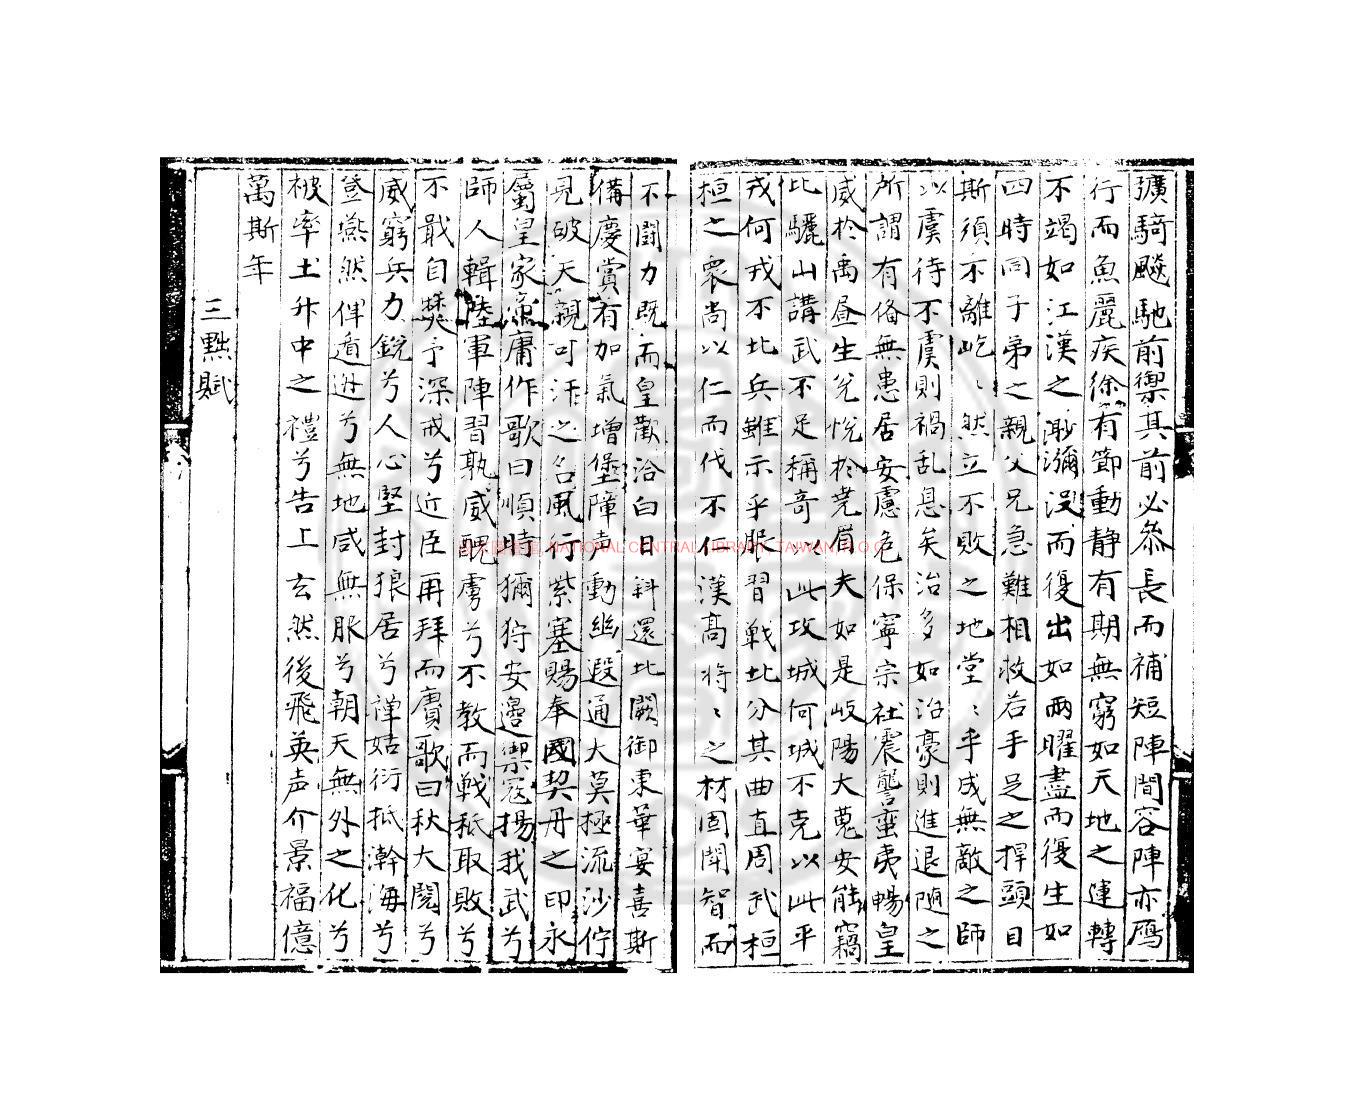 彍騎飈馳前禦其前必叅長而補短陣間容陣亦鴈
行而魚麗疾徐有節動靜有期無窮如天地之運轉
不竭如江漢之渺瀰没而復出如兩曜盡而復生如
四時同子弟之親父兄急難相救若手足之捍頭目
斯須不離屹〻然立不敗之地堂〻乎成無敵之師
以虞待不虞則禍乱息矣治多如治寡則進退随之
所謂有俻無患居安慮危保寧宗社震讋蠻夷暢皇
威於禹甸生兊悅於堯眉夫如是岐陽大蒐安能竊
比驪山講武不足稱竒以此攻城何城不克以此平
戎何戎不北兵雖示乎服習戰比分其曲直周武桓
桓之衆尚以仁而伐不仁漢髙將〻之材固鬪智而
不鬪力既而皇歡洽白日斜還北闕御東華宴喜斯
備慶賞有加氣增堡障声動幽遐通大莫極流沙佇
見破天親可汗之名風行紫塞賜奉國契丹之印永
屬皇家帝庸作歌曰順時獮狩安邊禦寇揚我武兮
師人輯陸軍陣習孰威醜虜兮不教而戰秪取敗兮
不戢自焚予深戒兮近臣再拜而賡歌曰秋大閱兮
威窮兵力銳兮人心堅封狼居兮禪姑衍抵瀚海兮
登燕然俾遁逃兮無地咸無服兮朝天無外之化兮
被率土升中之禮兮告上玄然後飛英声介景福億
萬斯年
三㸃賦
NATIONAL CENTRAL LIBRARY, TAIWAN, R.O.C